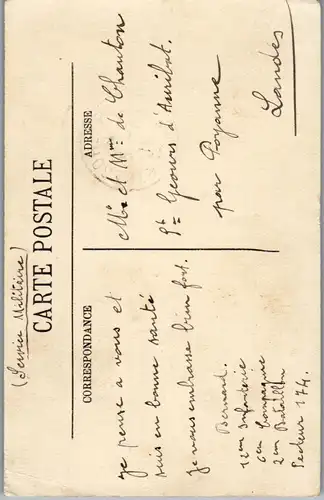 (Service Militaire)
CARTE POSTALE
CORRESPONDANCE
Je pense a vous et
suis en bonne santé
Je vous embrasse bien fort.
Bernard.
12em Infanterie
6em Compagnie
2em Bataillon
Secteur 174.
ADRESSE
Mr et Mme de Chanton
St Geours d'Auribat.
par Poyanne
Landes